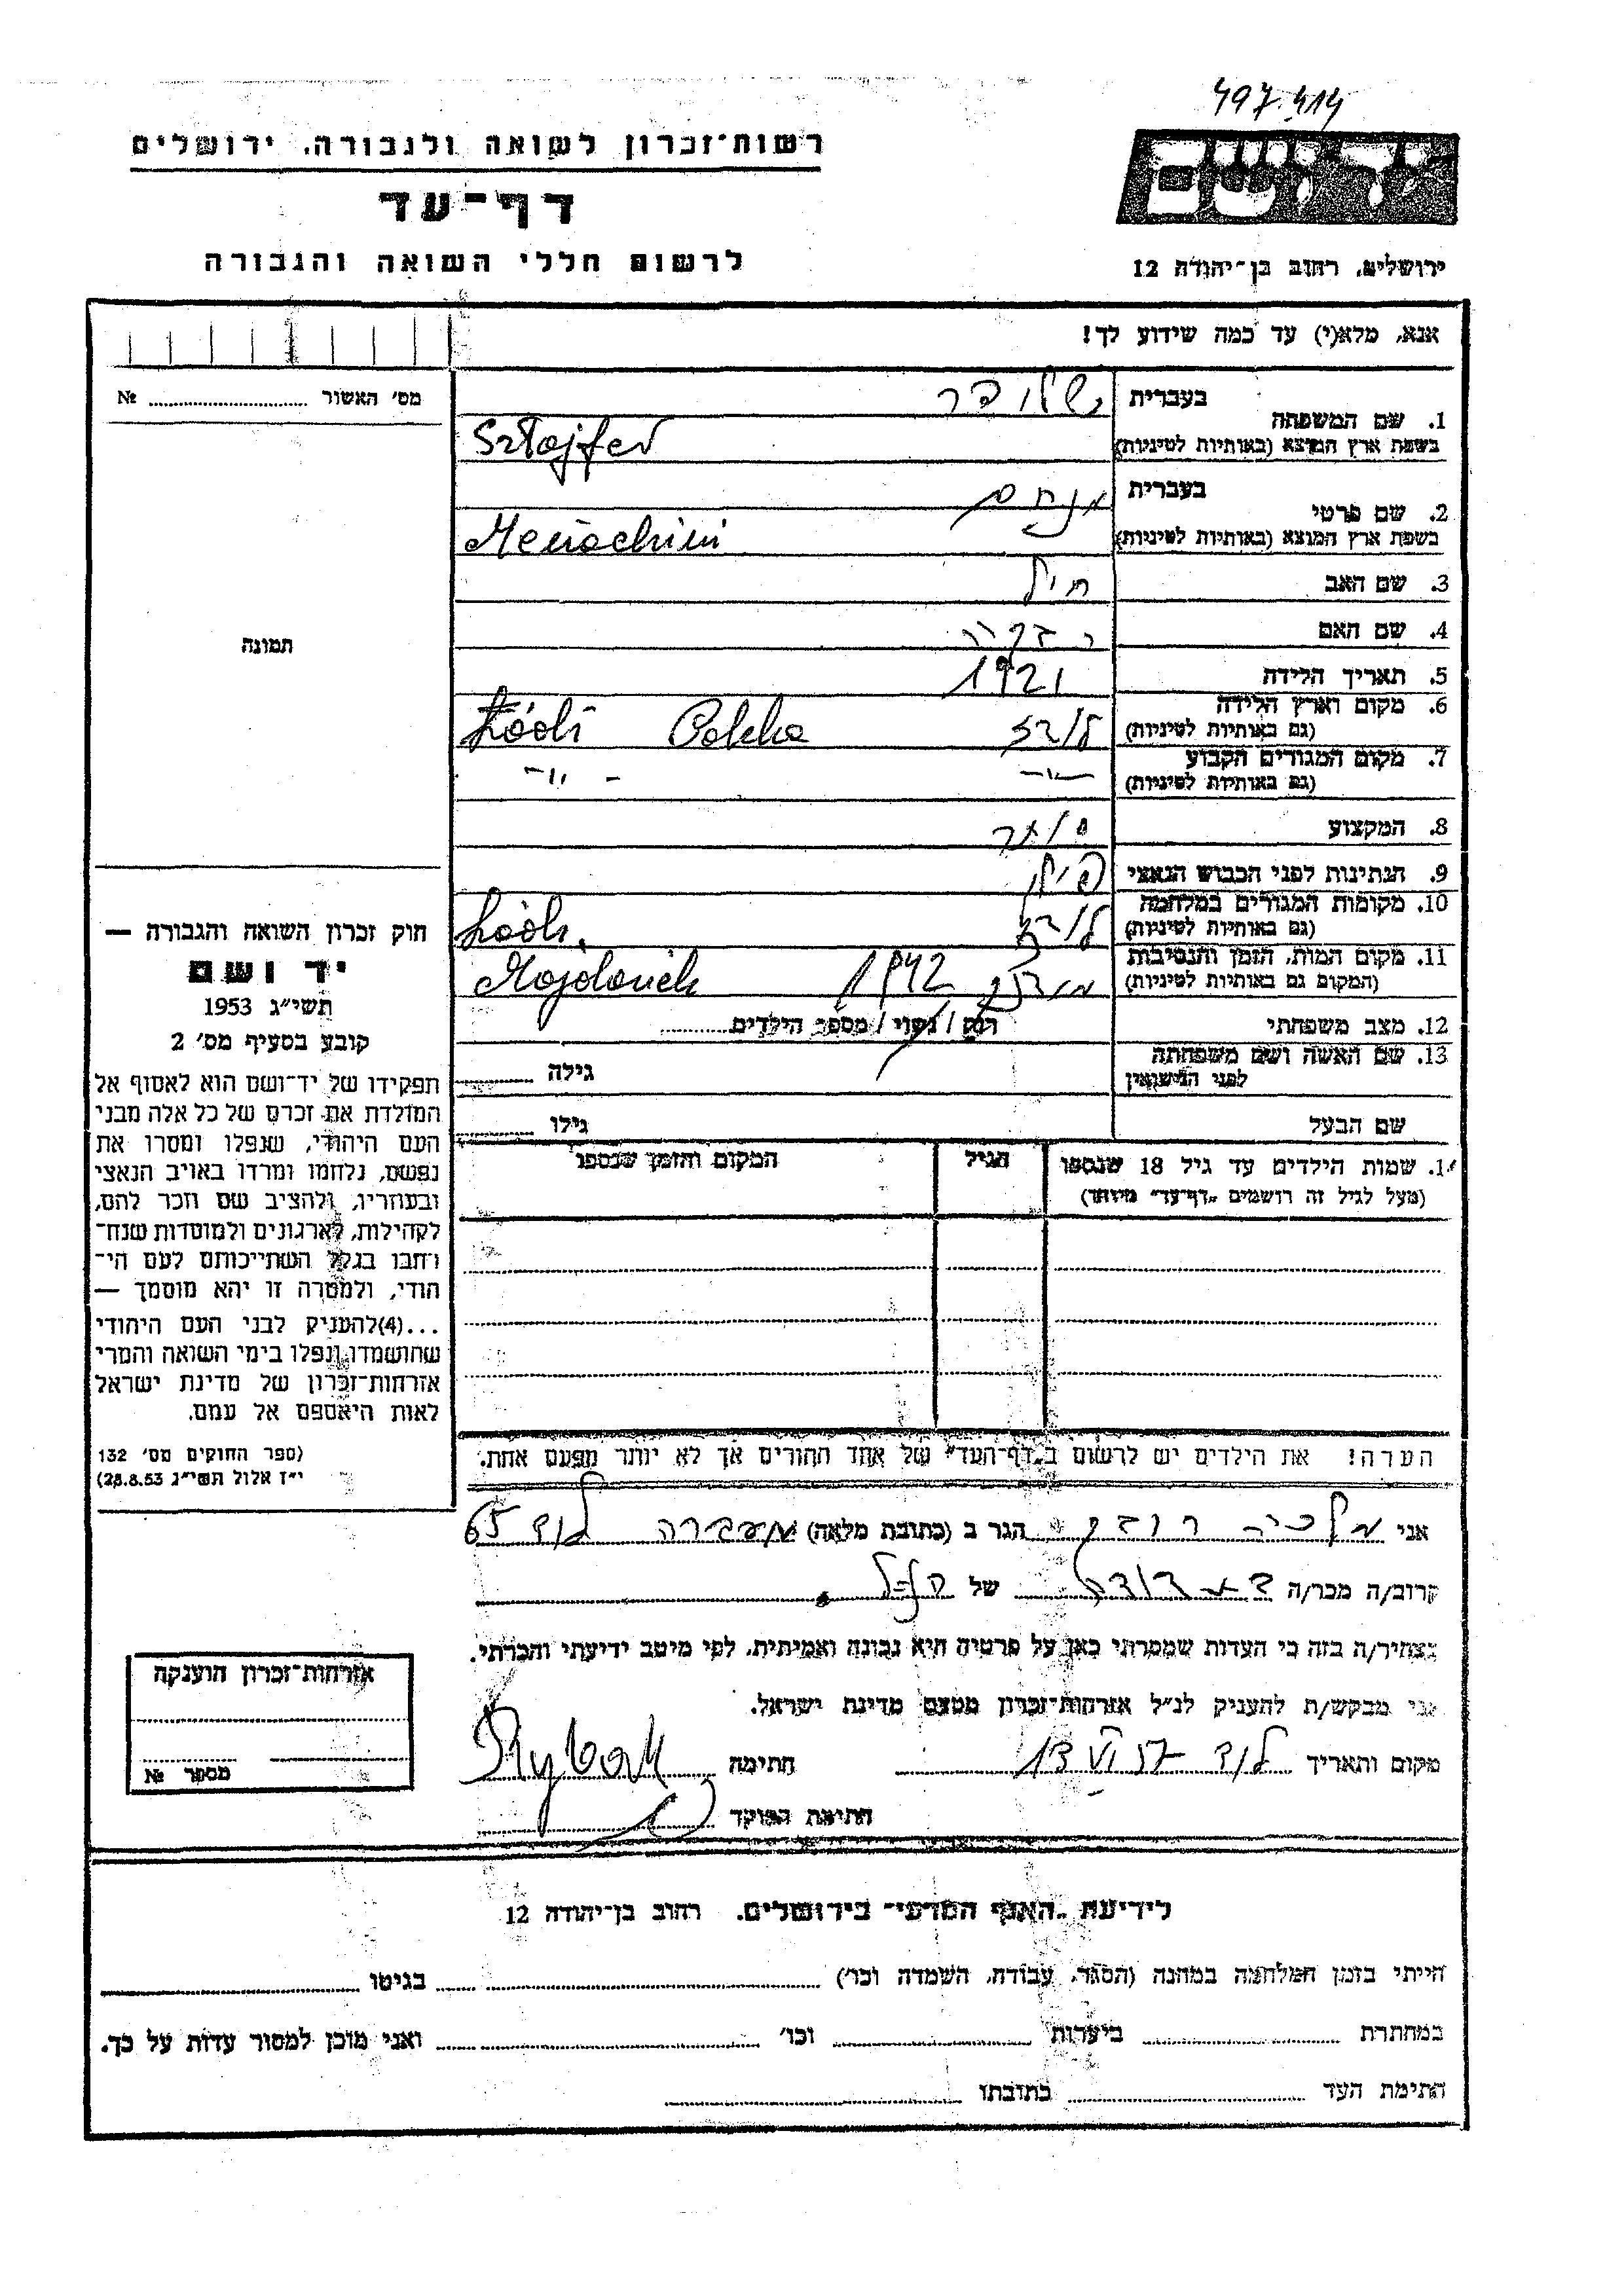 497.414
רשות־זכרון לשואה ולגבורה, ירושלים
יד ושם
דף־עד
לרשום חללי השואה והגבורה
ירושלים, רחוב בן־יהודה 12
אנא, מלא(י) עד כמה שידוע לך!
מס׳ האשור ........ №
1. שם המשפחה
בעברית
בשפת ארץ המוצא (באותיות לטיניות) Sztajfer
2. שם פרטי
בעברית מנחם
בשפת ארץ המוצא (באותיות לטיניות) Menachim
3. שם האב
4. שם האם רבקה
5. תאריך הלידה 1921
6. מקום וארץ הלידה
(גם באותיות לטיניות) לודז Polska Łódź
7. מקום המגורים הקבוע
(גם באותיות לטיניות) -״- -״-
8. המקצוע
9. הנתינות לפני הכבוש הנאצי פולני
10. מקומות המגורים במלחמה
(גם באותיות לטיניות) לודז Łódź.
11. מקום המות, הזמן והנסיבות
(המקום גם באותיות לטיניות) מידנק 1942 Majdanek
12. מצב משפחתי רוק / נשוי / מספר הילדים
13. שם האשה ושם משפחתה
לפני הנישואין גילה
שם הבעל גילו
תמונה
חוק זכרון השואה והגבורה —
יד ושם
תשי״ג 1953
קובע בסעיף מס׳ 2
תפקידו של יד־ושם הוא לאסוף אל
המולדת את זכרם של כל אלה מבני
העם היהודי, שנפלו ומסרו את
נפשם, נלחמו ומרדו באויב הנאצי
ובעוזריו, ולהציב שם וזכר להם,
לקהילות, לארגונים ולמוסדות שנח־
רבו בגלל השתייכותם לעם הי־
הודי, ולמטרה זו יהא מוסמך —
...(4)להעניק לבני העם היהודי
שהושמדו ונפלו בימי השואה והמרי
אזרחות־זכרון של מדינת ישראל
לאות היאספם אל עמם.
(ספר החוקים מס׳ 132
י״ז אלול תשי״ג 28.8.53)
14. שמות הילדים עד גיל 18 שנספו
(מעל לגיל זה רושמים „דף־עד״ מיוחד)
הגיל
המקום והזמן שנספו
הערה! את הילדים יש לרשום ב„דף־העד״ של אחד ההורים אך לא יותר מפעם אחת.
אני מלכיה הגר ב (כתובת מלאה) מעברה לוד 65
קרוב/ה מכר/ה של הנ״ל
מצהיר/ה בזה כי העדות שמסרתי כאן על פרטיה היא נכונה ואמיתית, לפי מיטב ידיעתי והכרתי.
אני מבקש/ת להעניק לנ״ל אזרחות־זכרון מטעם מדינת ישראל.
מקום ותאריך לוד 13 VI 57 חתימה Rybak
חתימת הפוקד
אזרחות־זכרון הוענקה
מספר №
לידיעת „האגף המדעי״ בירושלים, רחוב בן־יהודה 12
הייתי בזמן המלחמה במחנה (הסגר, עבודה, השמדה וכו׳) בגיטו
במחתרת ביערות וכו׳ ואני מוכן למסור עדות על כך.
חתימת העד כתובתו